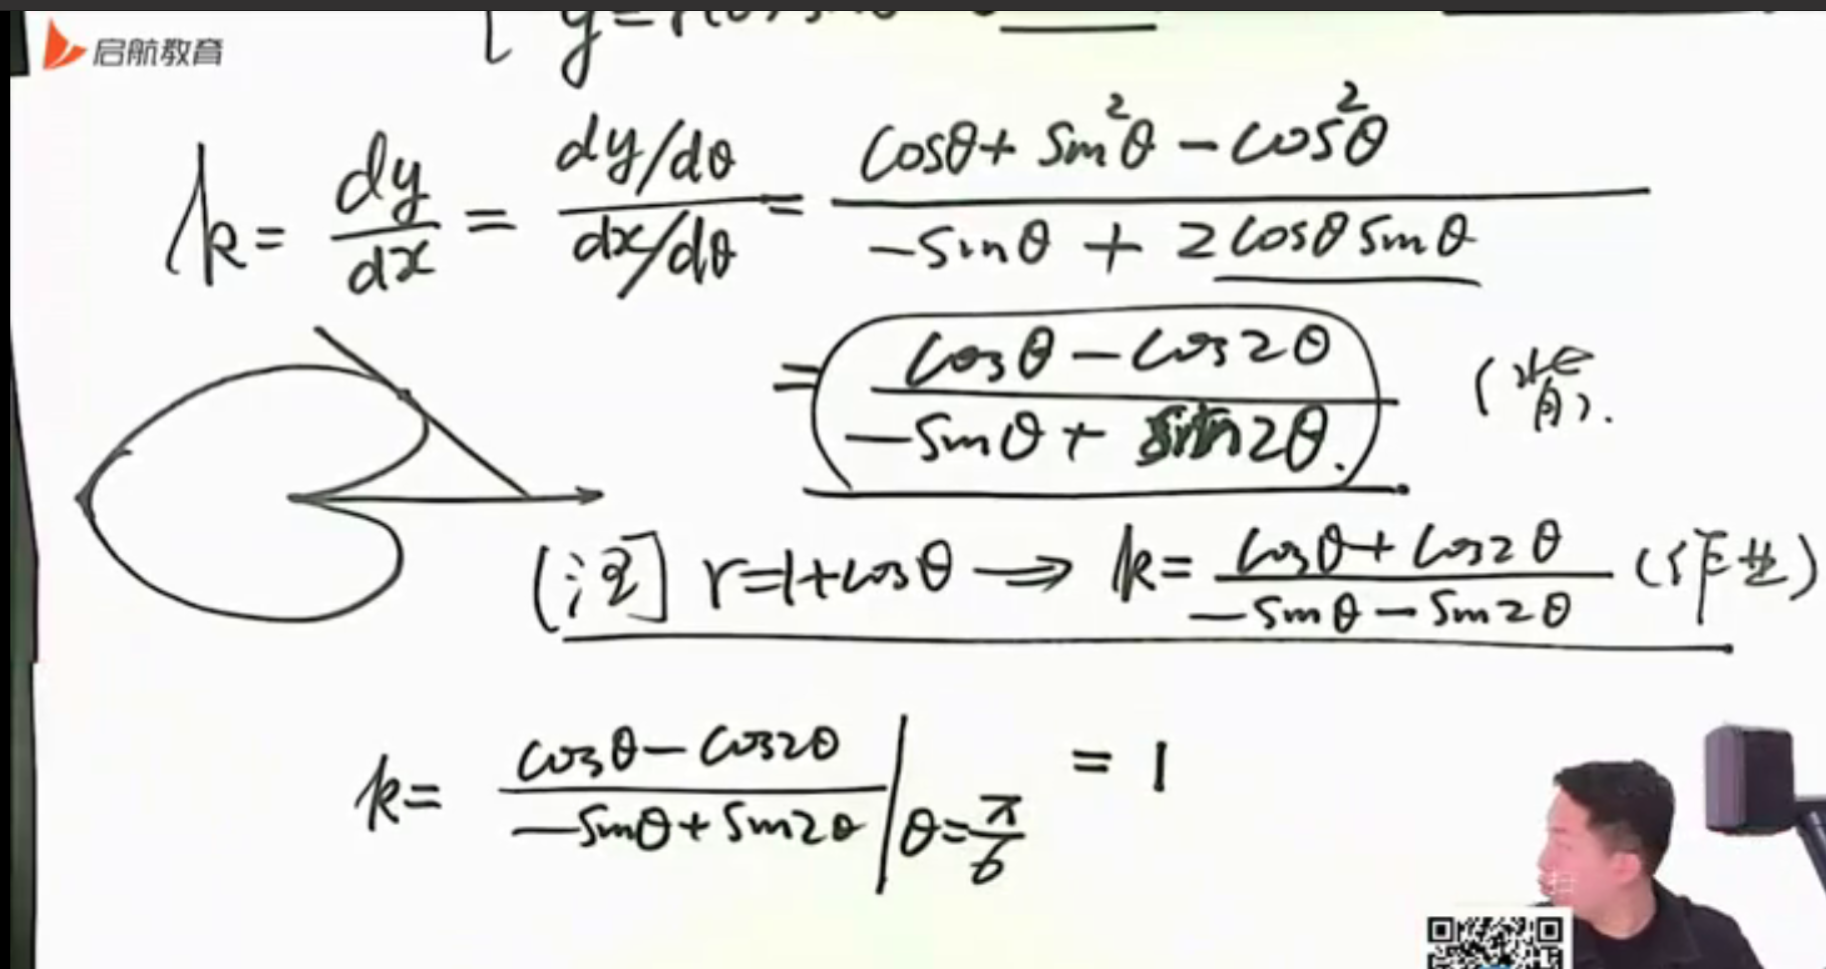 启航教育
k = dy/dx = (dy/dθ)/(dx/dθ) = (cosθ + sin²θ - cos²θ)/(-sinθ + 2cosθsinθ)
= (cosθ - cos2θ)/(-sinθ + sin2θ) (背).
[注] r=1+cosθ → k = (cosθ + cos2θ)/(-sinθ - sin2θ) (作业)
k = (cosθ - cos2θ)/(-sinθ + sin2θ) | θ=π/6 = 1